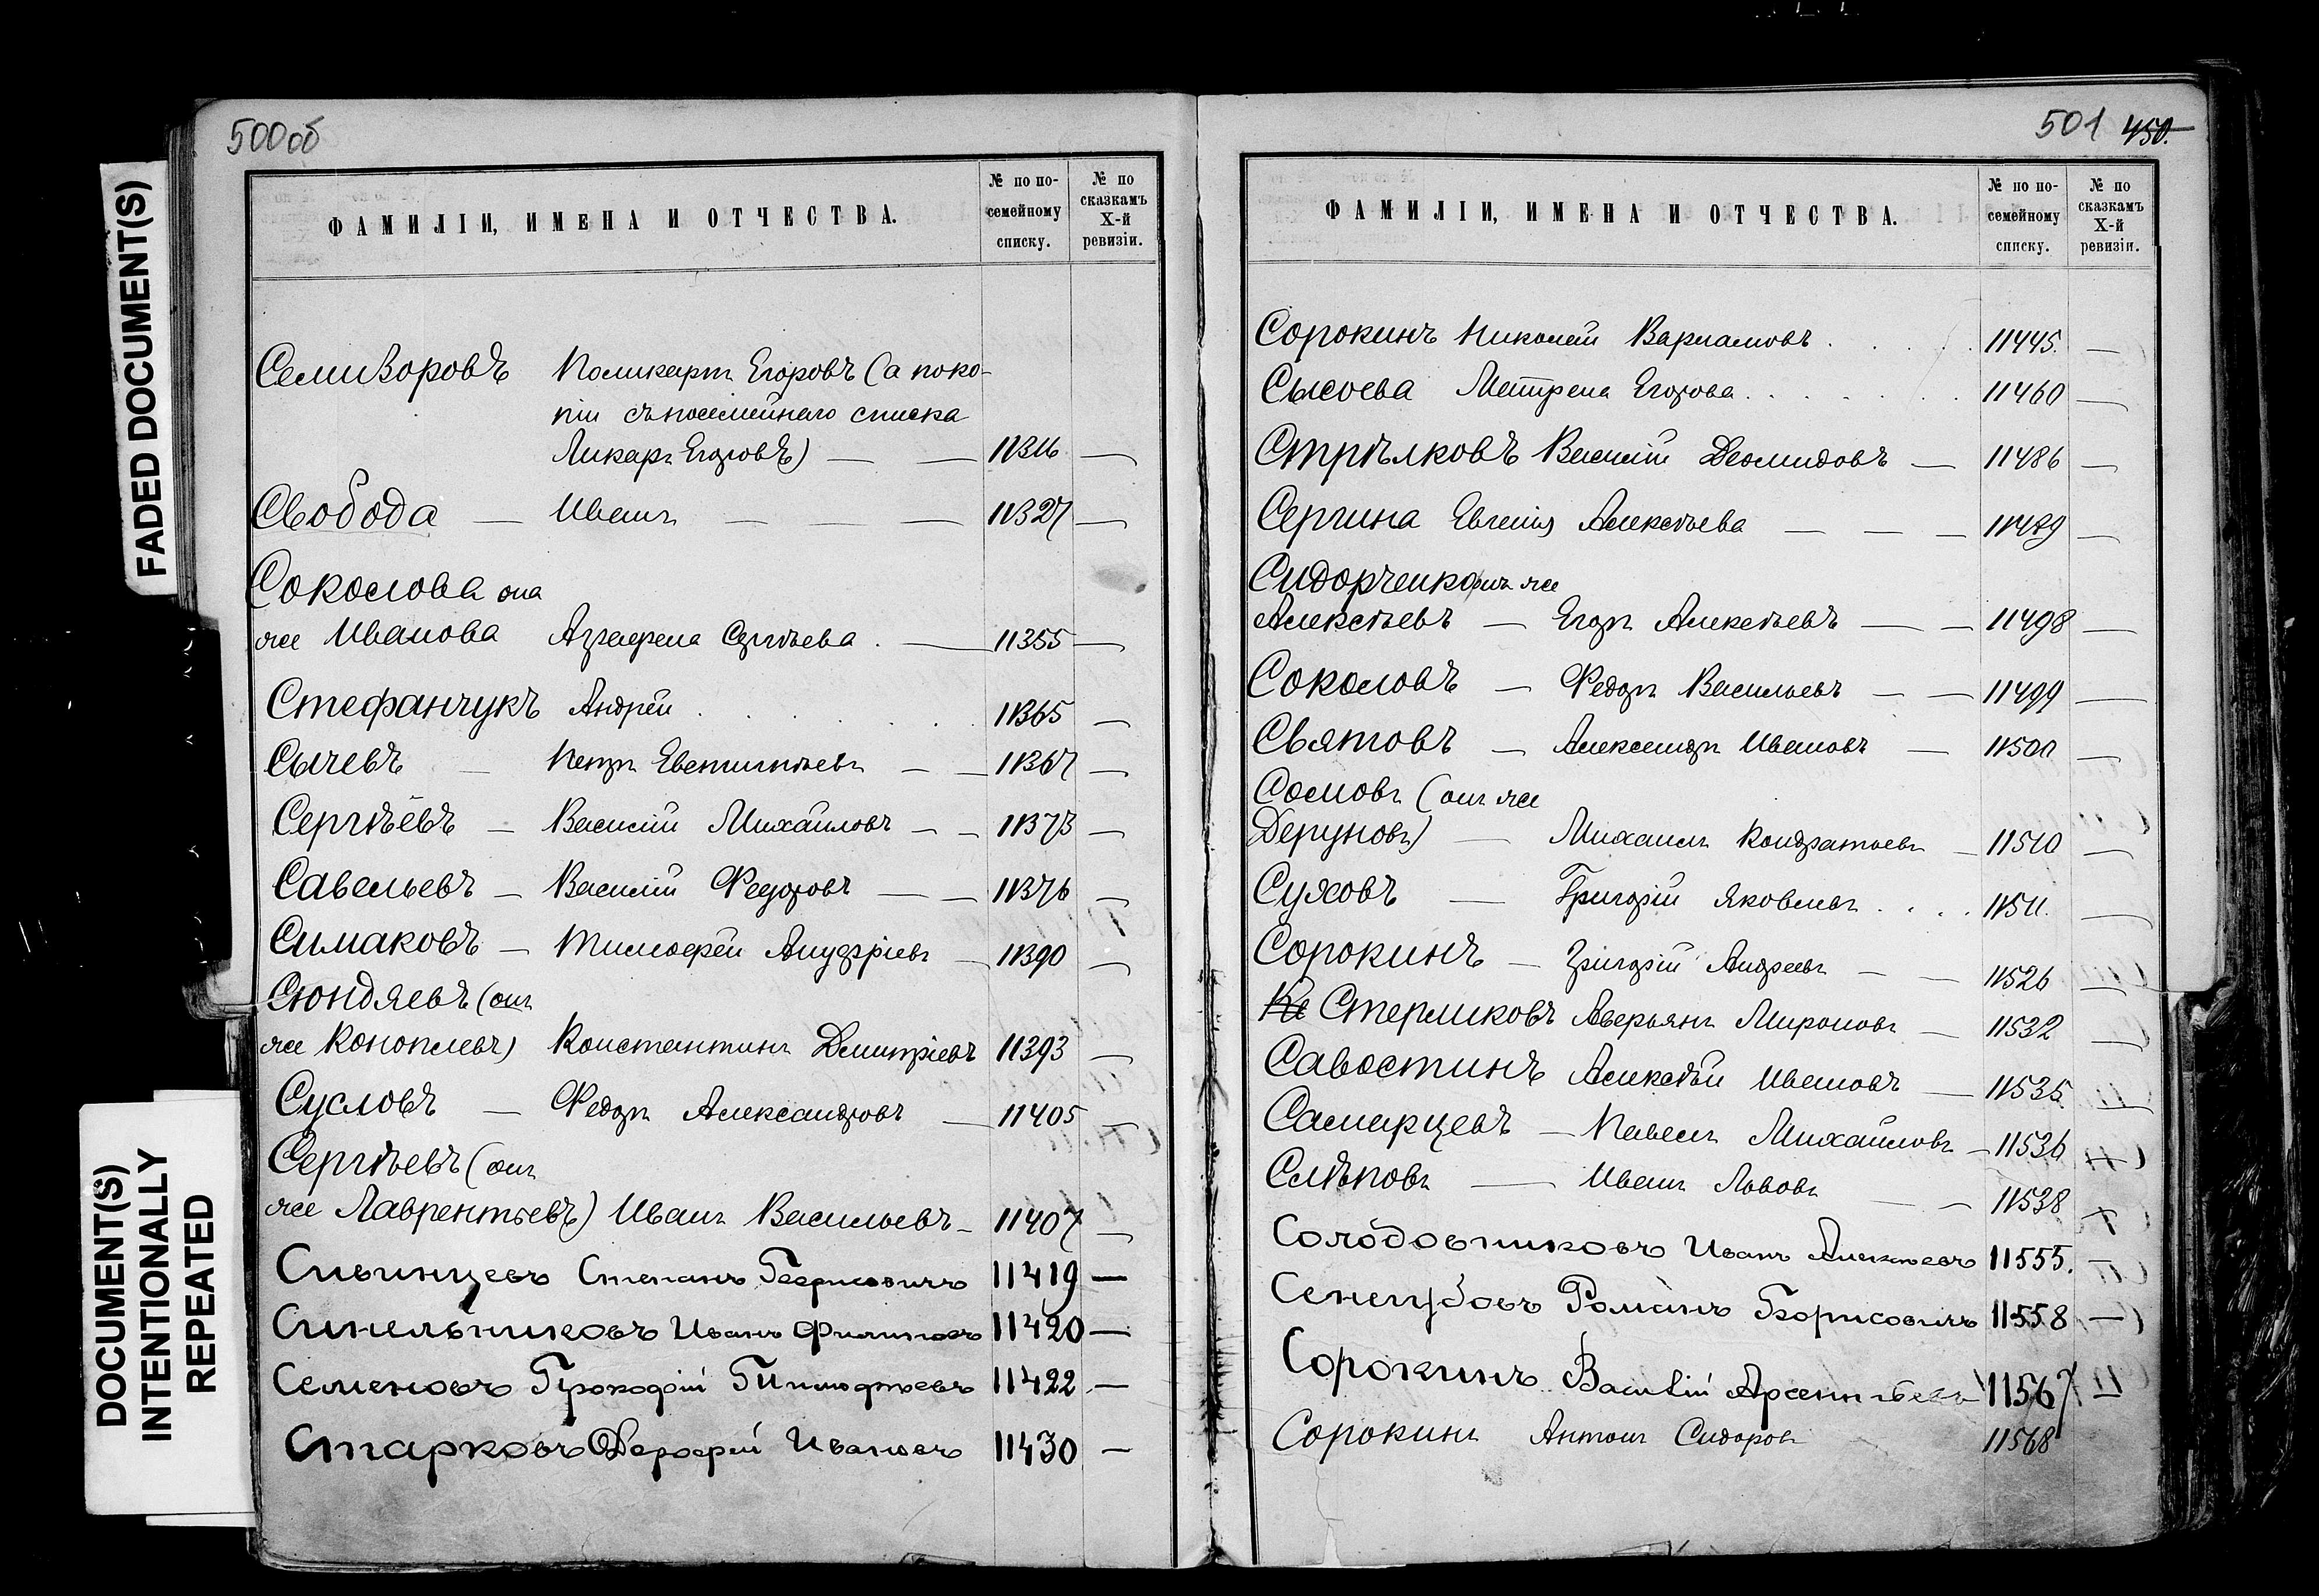 500об
ФАМИЛІИ, ИМЕНА И ОТЧЕСТВА.
№ по по-
семейному
списку.
№ по
сказкамъ
X-й
ревизіи.
Семизоровъ Поликарпъ Егоровъ (а по ко-
піи съ посемейнаго списка
Ликаръ Егоровъ) — — 11316 —
Свобода — Иванъ — — — 11327 —
Соколова она
же Иванова Аграфена Сергѣева . — 11355 —
Стефанчукъ Андрей . . . . . 11365 —
Сычевъ — Петръ Евтигнѣевъ — — 11367 —
Сергѣевъ — Василій Михайловъ — — 11373 —
Савельевъ — Василій Федоровъ — — 11376 —
Симаковъ — Тимофей Ануфріевъ — 11390 —
Сюндяевъ (онъ
же Коноплевъ) Константинъ Дмитріевъ 11393 —
Сусловъ — Федоръ Александровъ — 11405 —
Сергѣевъ (онъ
же Лаврентьевъ) Иванъ Васильевъ — 11407 —
Сивинцевъ Степанъ 11419 —
Синельниковъ Иванъ Филиповъ 11420 —
Семеновъ Прокофій Тимофѣевъ 11422 —
Старковъ Дорофей Ивановъ 11430 —
501 450.
ФАМИЛІИ, ИМЕНА И ОТЧЕСТВА.
№ по по-
семейному
списку.
№ по
сказкамъ
X-й
ревизіи.
Сорокинъ Николай Варламовъ . . . . 11445. —
Сысоева Матрена Егорова . . . . . 11460 —
Стрѣлковъ Василій Деомидовъ — 11486 —
Сергина Евгенія Алексѣева — — — 11489 —
Сидорченко онъ же
Алексѣевъ — Егоръ Алексѣевъ — — 11498 —
Соколовъ — Федоръ Васильевъ — — 11499 —
Святовъ — Александръ Ивановъ — 11500 —
Сомовъ (онъ же
Деруновъ) — Михаилъ Кондратьевъ — 11510 —
Суховъ — Григорій Яковлевъ . . . . 11511. —
Сорокинъ — Григорій Андреевъ — — 11526 —
Стерликовъ Аверьянъ Мироновъ — 11532 —
Савостинъ Алексѣй Ивановъ — 11535 —
Самарцевъ — Павелъ Михайловъ — 11536 —
Слѣповъ — Иванъ Львовъ — — 11538 —
Солодовниковъ Иванъ Алексѣевъ 11555. —
Романъ Борисовичъ 11558 —
Сорокинъ Василій Арсентьевъ 11567 —
Сорокинъ Антонъ Сидоровъ 11568
FADED DOCUMENT(S)
DOCUMENT(S)
INTENTIONALLY
REPEATED